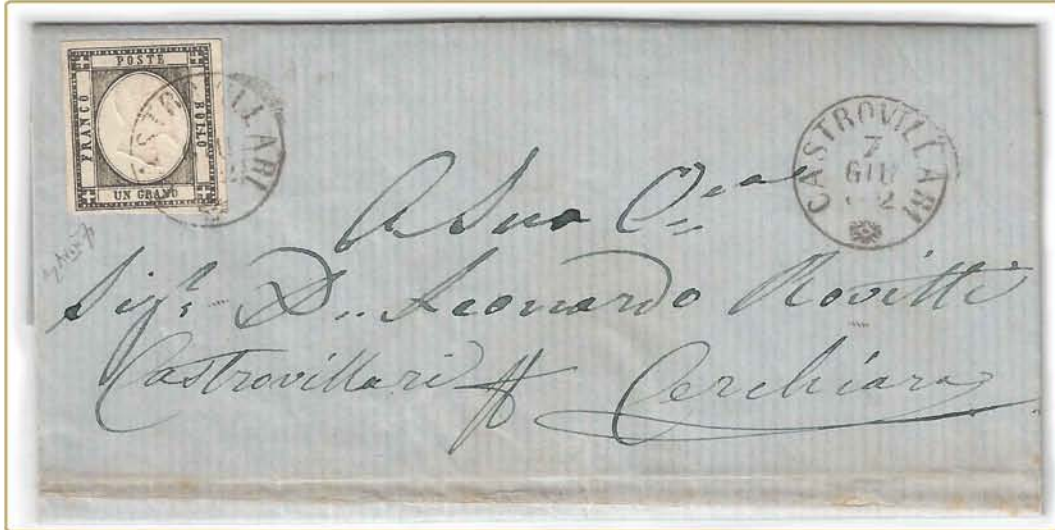 POSTE
FRANCO
BOLLO
UN GRANO
CASTROVILLARI
7
GIU
A Sua Ecc.
Sig.r D. Leonardo Rovitti
Castrovillari Cerchiara